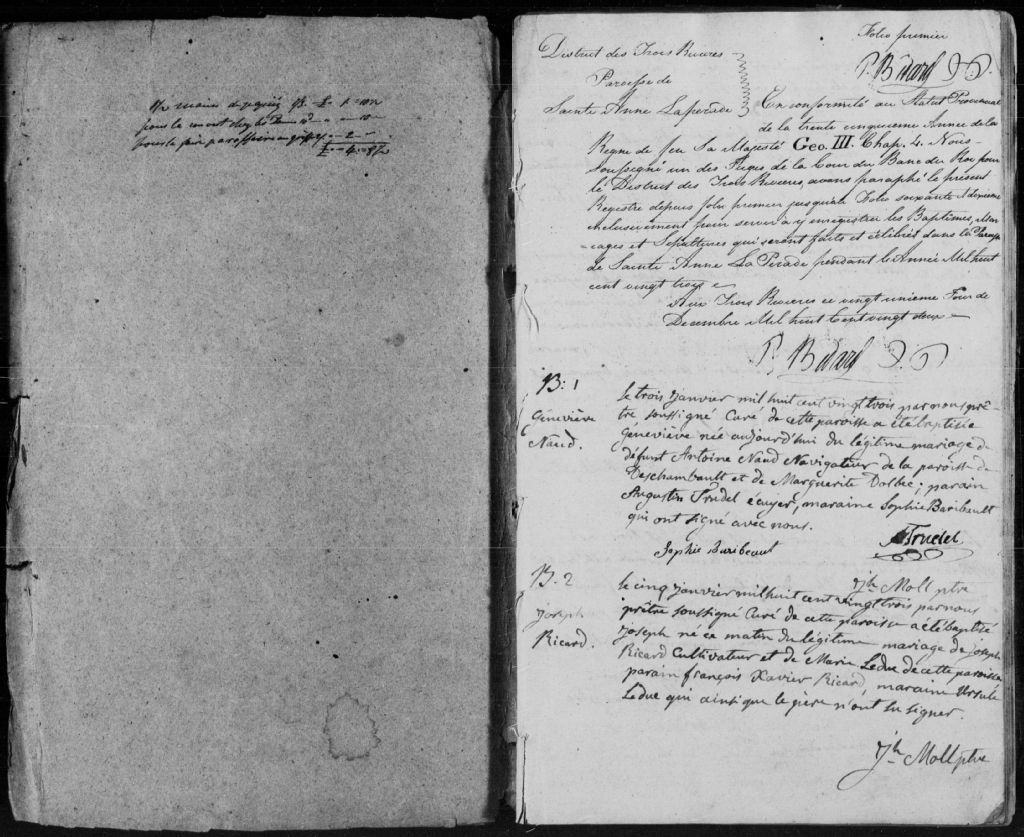 main de papier
pour le
pour le
Folio premier
P. Bédard
District des Trois Rivieres
Paroisse de
Sainte Anne Laperade
En conformité au Statut Provincial
de la trente cinquieme Année de la
Regne de feu Sa Majesté Geo. III. Chap. 4. Nous
soussigné un des Juges de la Cour du Banc du Roi pour
le District des Trois Rivieres, avons paraphé le présent
Registre depuis folio premier jusqu'au Folio soixante et dixieme
inclusivement pour servir à y enregistrer les Baptêmes, Mari
ages et Sepultures qui seront faits et célébrés dans la Paroisse
de Sainte Anne La Perade pendant le Année Mil huit
cent vingt trois
Aux Trois Rivieres ce vingt unieme Jour de
Decembre Mil huit Cent vingt deux
P. Bédard
B: 1
Géneviève
Naud.
Le trois janvier mil huit cent vingt trois par nous prê-
tre soussigné Curé de cette paroisse a été baptisée
Géneviève née aujourd'hui du légitime mariage de
défunt Antoine Naud Navigateur de la paroisse de
Deschambault et de Marguerite Dolbec; parain
Augustin Trudel écuyer, maraine Sophie Baribault
qui ont signé avec nous.
Sophie Baribeaut
ATrudel
Jh Moll ptre
B. 2
Joseph
Ricard.
Le cinq janvier mil huit cent vingt trois par nous
prêtre soussigné Curé de cette paroisse a été baptisé
Joseph né ce matin du légitime mariage de Joseph
Ricard Cultivateur et de Marie Leduc de cette paroisse
parain françois Xavier Ricard, maraine Ursule
Leduc qui ainsi que le père n'ont su signer.
Jh Moll ptre